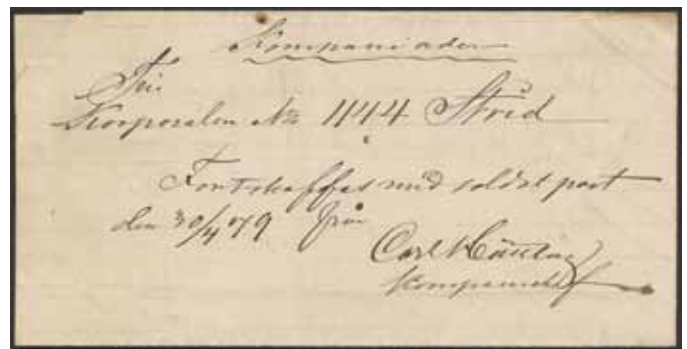 Kompaniorder
Till
Korporalen No 1144 Strid
Fortskaffas med soldat post
den 30/4 79 från
Carl
Kompanichef